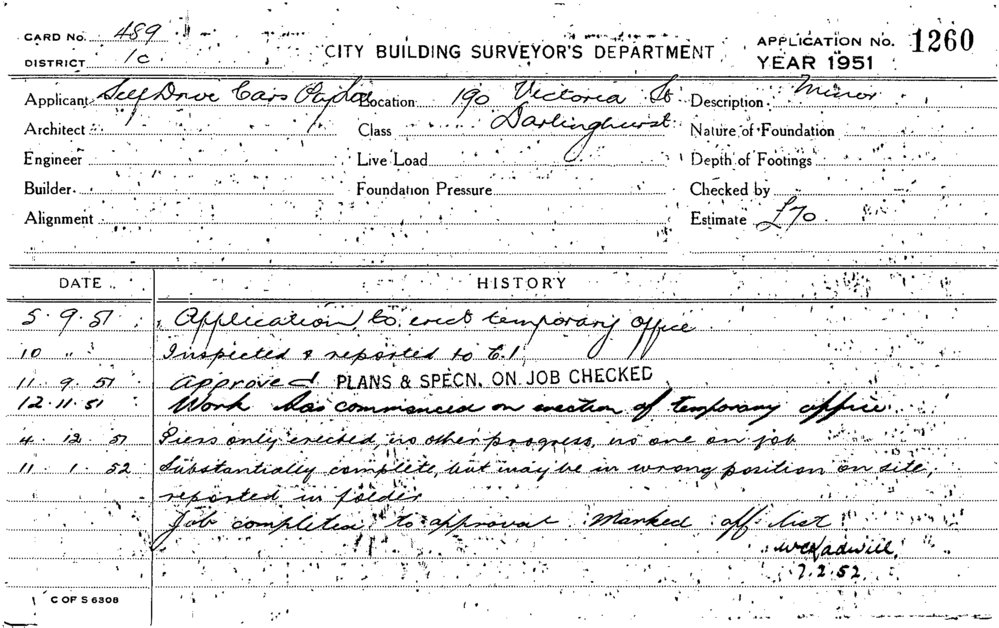 CARD No. 489
DISTRICT 1c
CITY BUILDING SURVEYOR'S DEPARTMENT
APPLICATION No. 1260
YEAR 1951
Applicant Self Drive Cars Pty Ltd
Location 190 Victoria St
Darlinghurst
Description Minor
Architect
Class
Nature of Foundation
Engineer
Live Load
Depth of Footings
Builder
Foundation Pressure
Checked by
Alignment
Estimate £70
DATE HISTORY
5.9.51 Application to erect temporary office
10 " Inspected & reported to
11.9.51 Approved PLANS & SPECN. ON JOB CHECKED
12.11.51 Work has commenced on erection of temporary office
4.12.51 Piers only erected, no other progress, no one on job
11.1.52 Substantially complete, but may be in wrong position on site,
reported in folder
Job completed to approval Marked off list
7.2.52
C OF S 6308